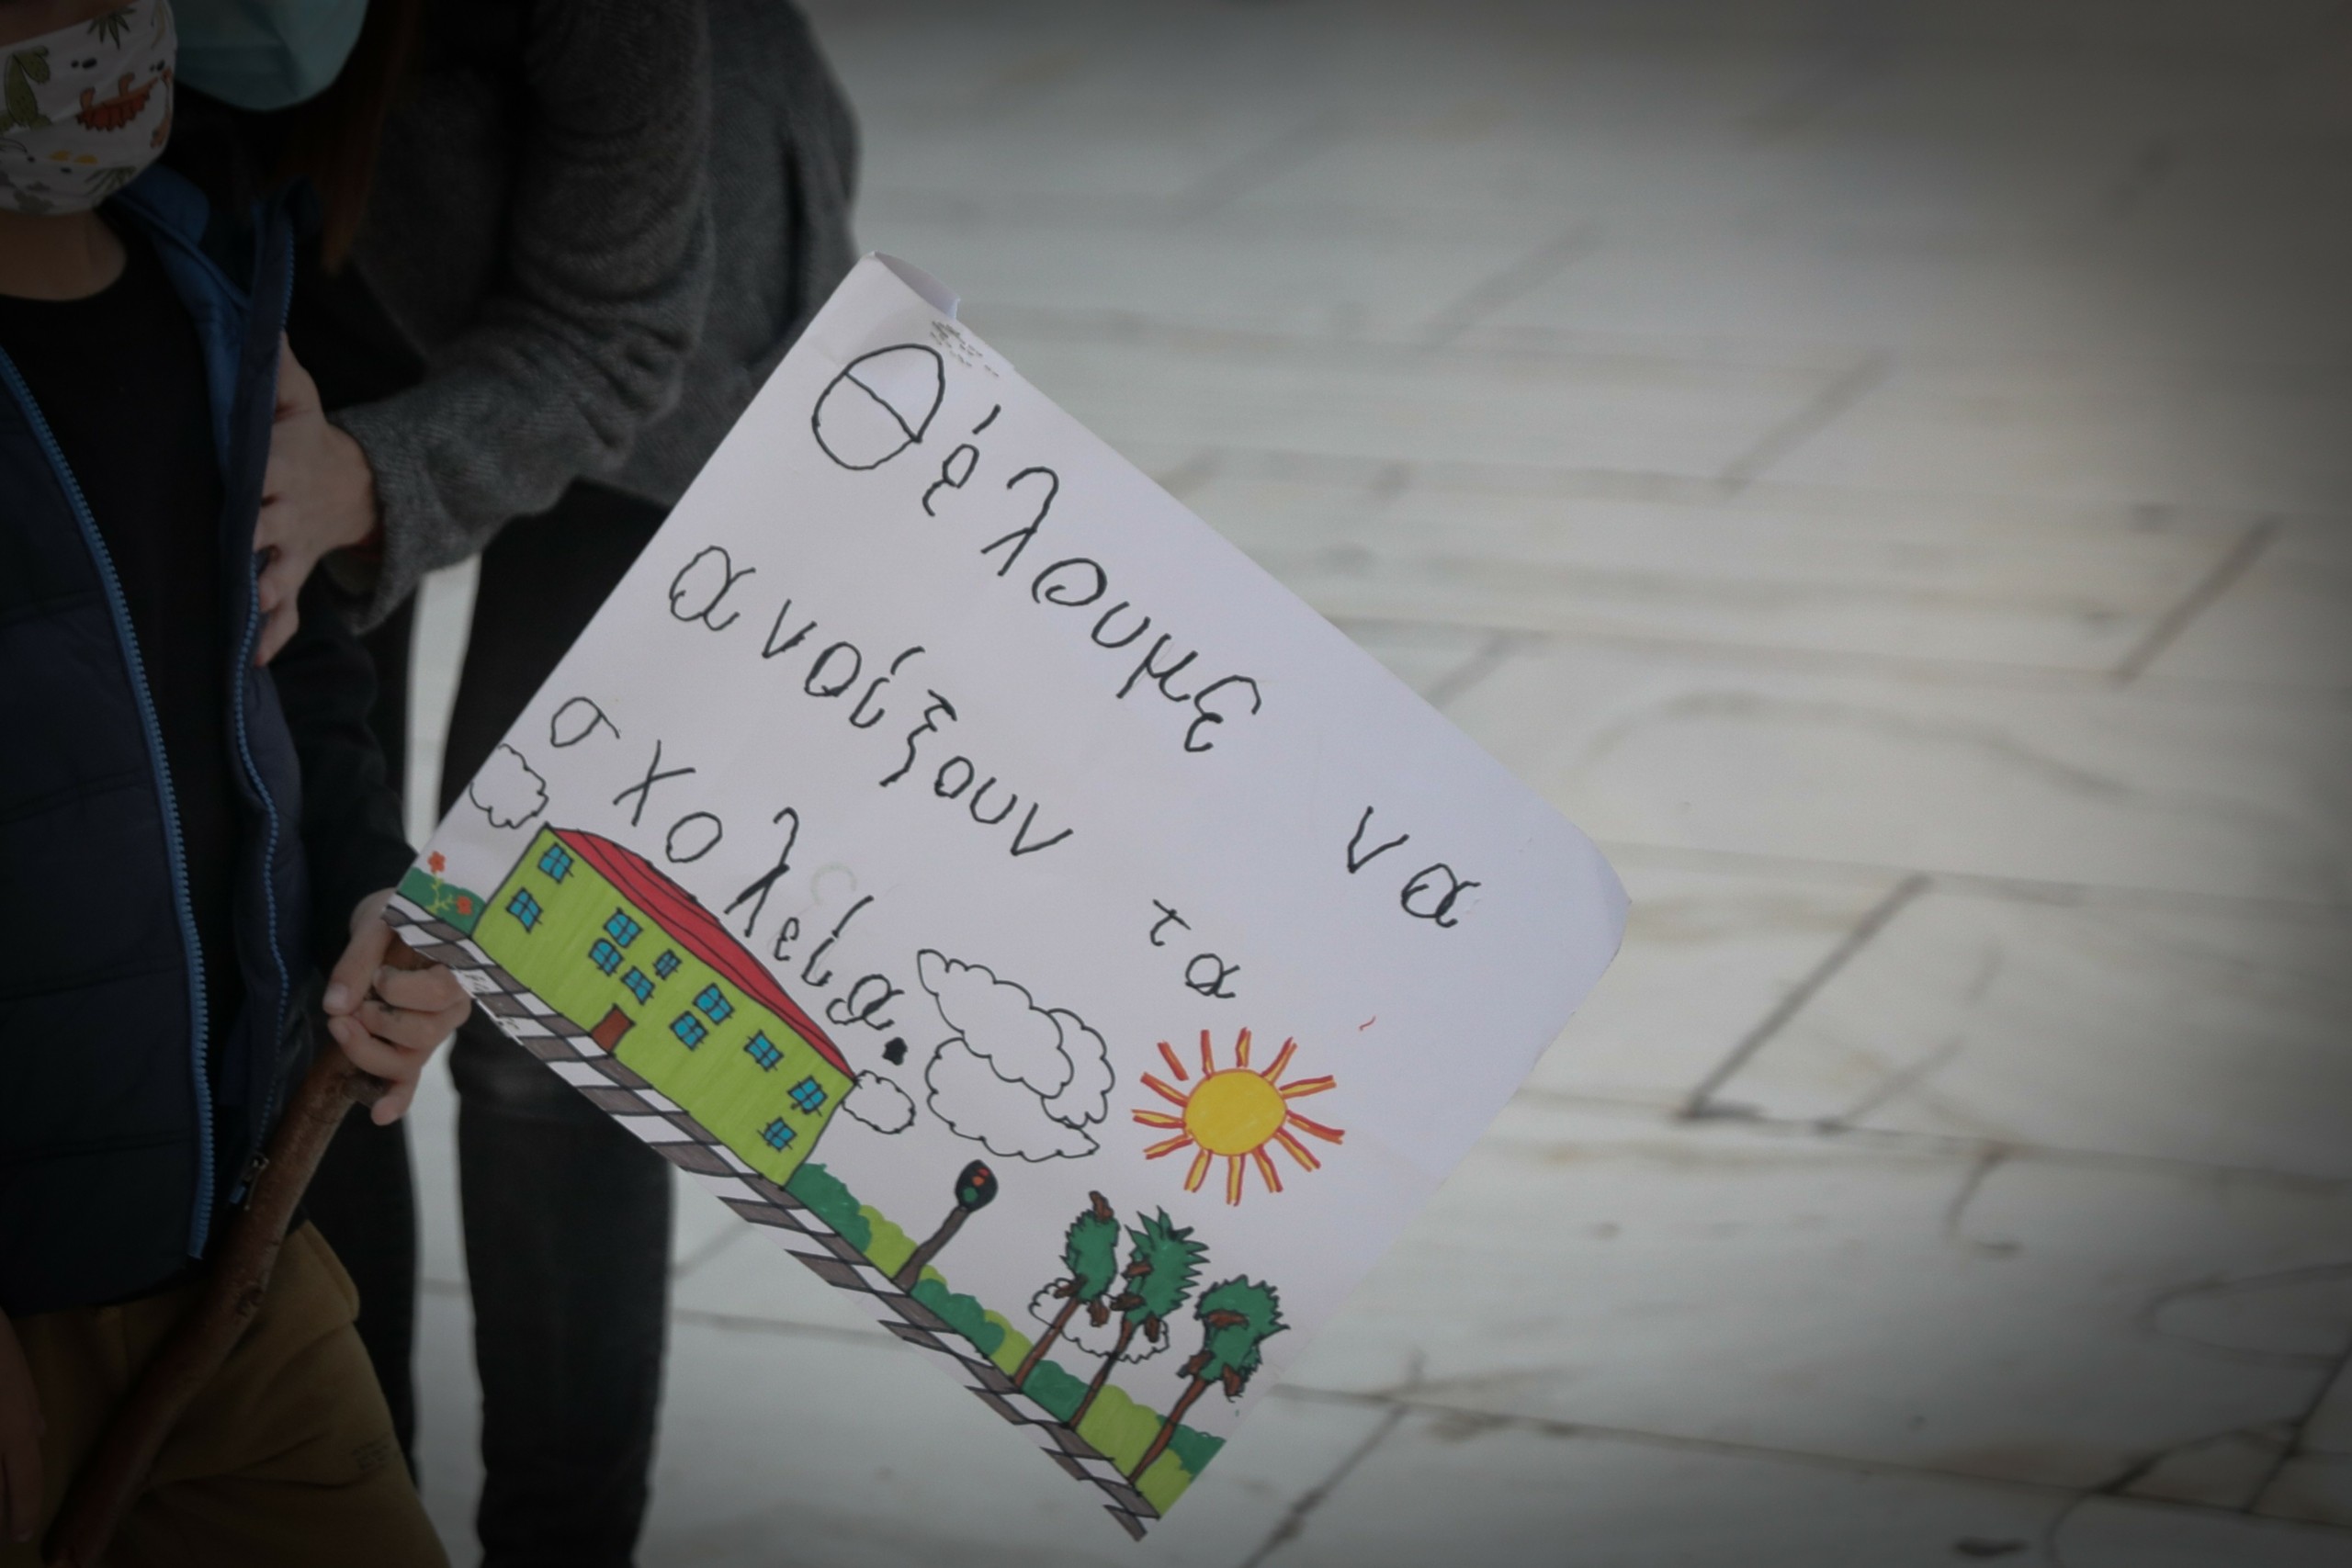 Θέλουμε να
ανοίξουν τα
σχολεία.